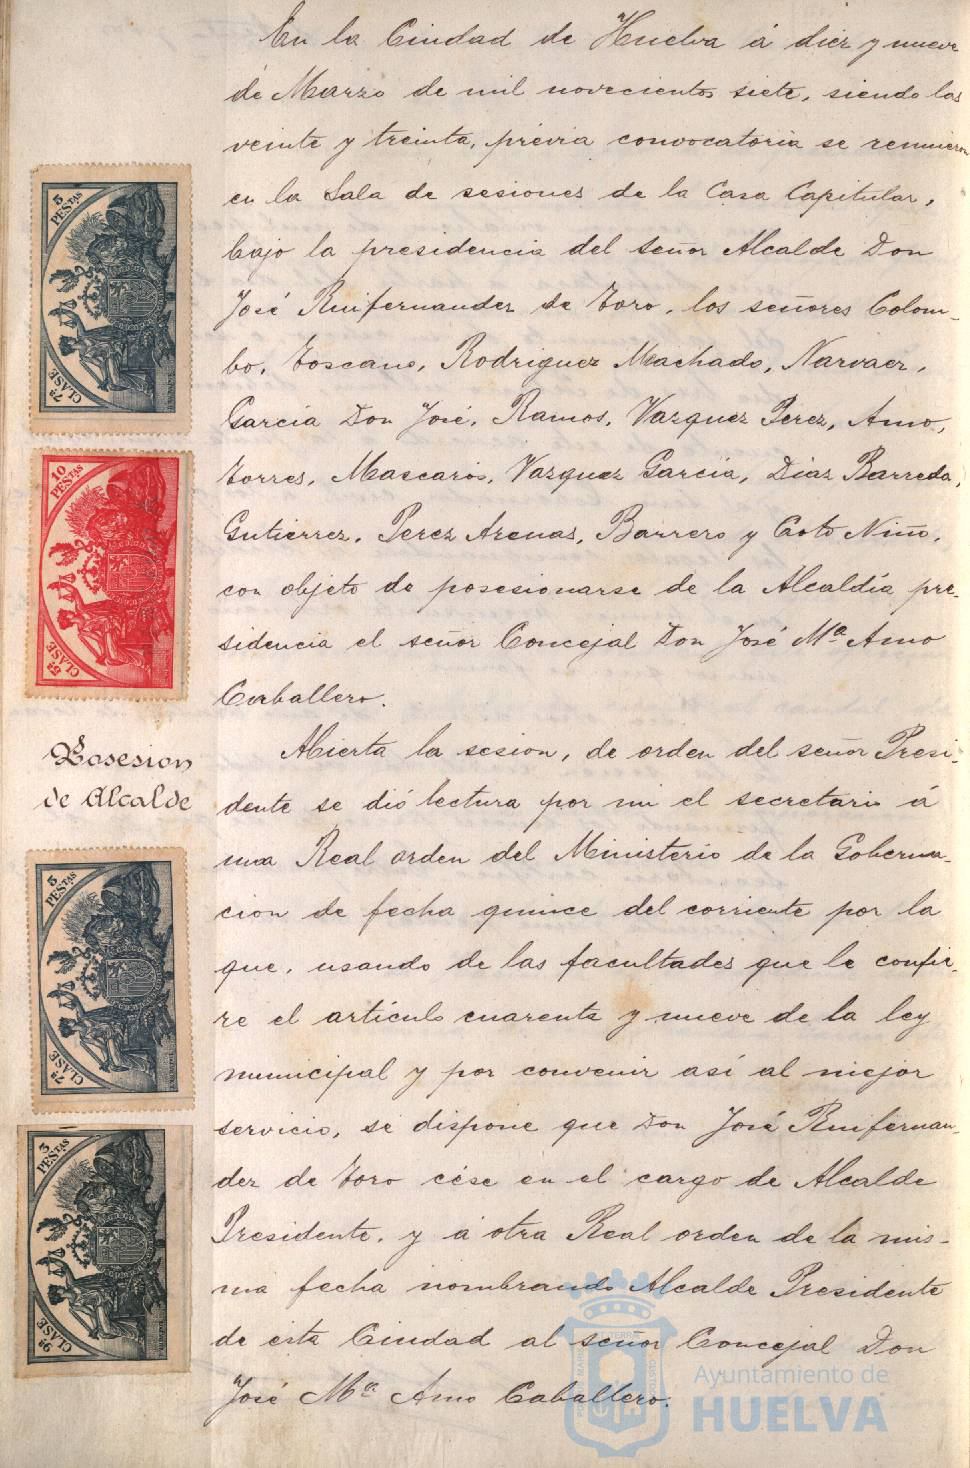 En la Ciudad de Huelva á diez y nueve
de Marzo de mil novecientos siete, siendo las
veinte y treinta, prévia convocatoria se reunieron
en la Sala de sesiones de la Casa Capitular,
bajo la presidencia del señor Alcalde Don
José Ruifernandez de Toro, los señores Colom-
bo, Toscano, Rodriguez Machado, Narvaez,
Garcia Don José, Ramos, Vazquez Perez, Amo,
Torres, Mascarós, Vazquez Garcia, Diaz Barreda,
Gutierrez, Perez Arenas, Barrero y Coto Niño,
con objeto de posesionarse de la Alcaldía pre-
sidencia el señor Concejal Don José Mª Amo
Carballero.
Posesion
de Alcalde
Abierta la sesion, de orden del señor Presi-
dente se dió lectura por mi el secretario á
una Real orden del Ministerio de la Goberna-
cion de fecha quince del corriente por la
que, usando de las facultades que le confie-
re el artículo cuarenta y nueve de la ley
municipal y por convenir así al mejor
servicio, se dispone que Don José Ruifernan-
dez de Toro cése en el cargo de Alcalde
Presidente, y á otra Real orden de la mis-
ma fecha nombrando Alcalde Presidente
de esta Ciudad al señor Concejal Don
José Mª Amo Caballero.
5 PESTAS
7ª CLASE
10 PESTAS
5ª CLASE
5 PESTAS
7ª CLASE
3 PESTAS
9ª CLASE
Ayuntamiento de
HUELVA